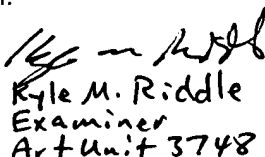 Kyle M. Riddle
Examiner
Art Unit 3748